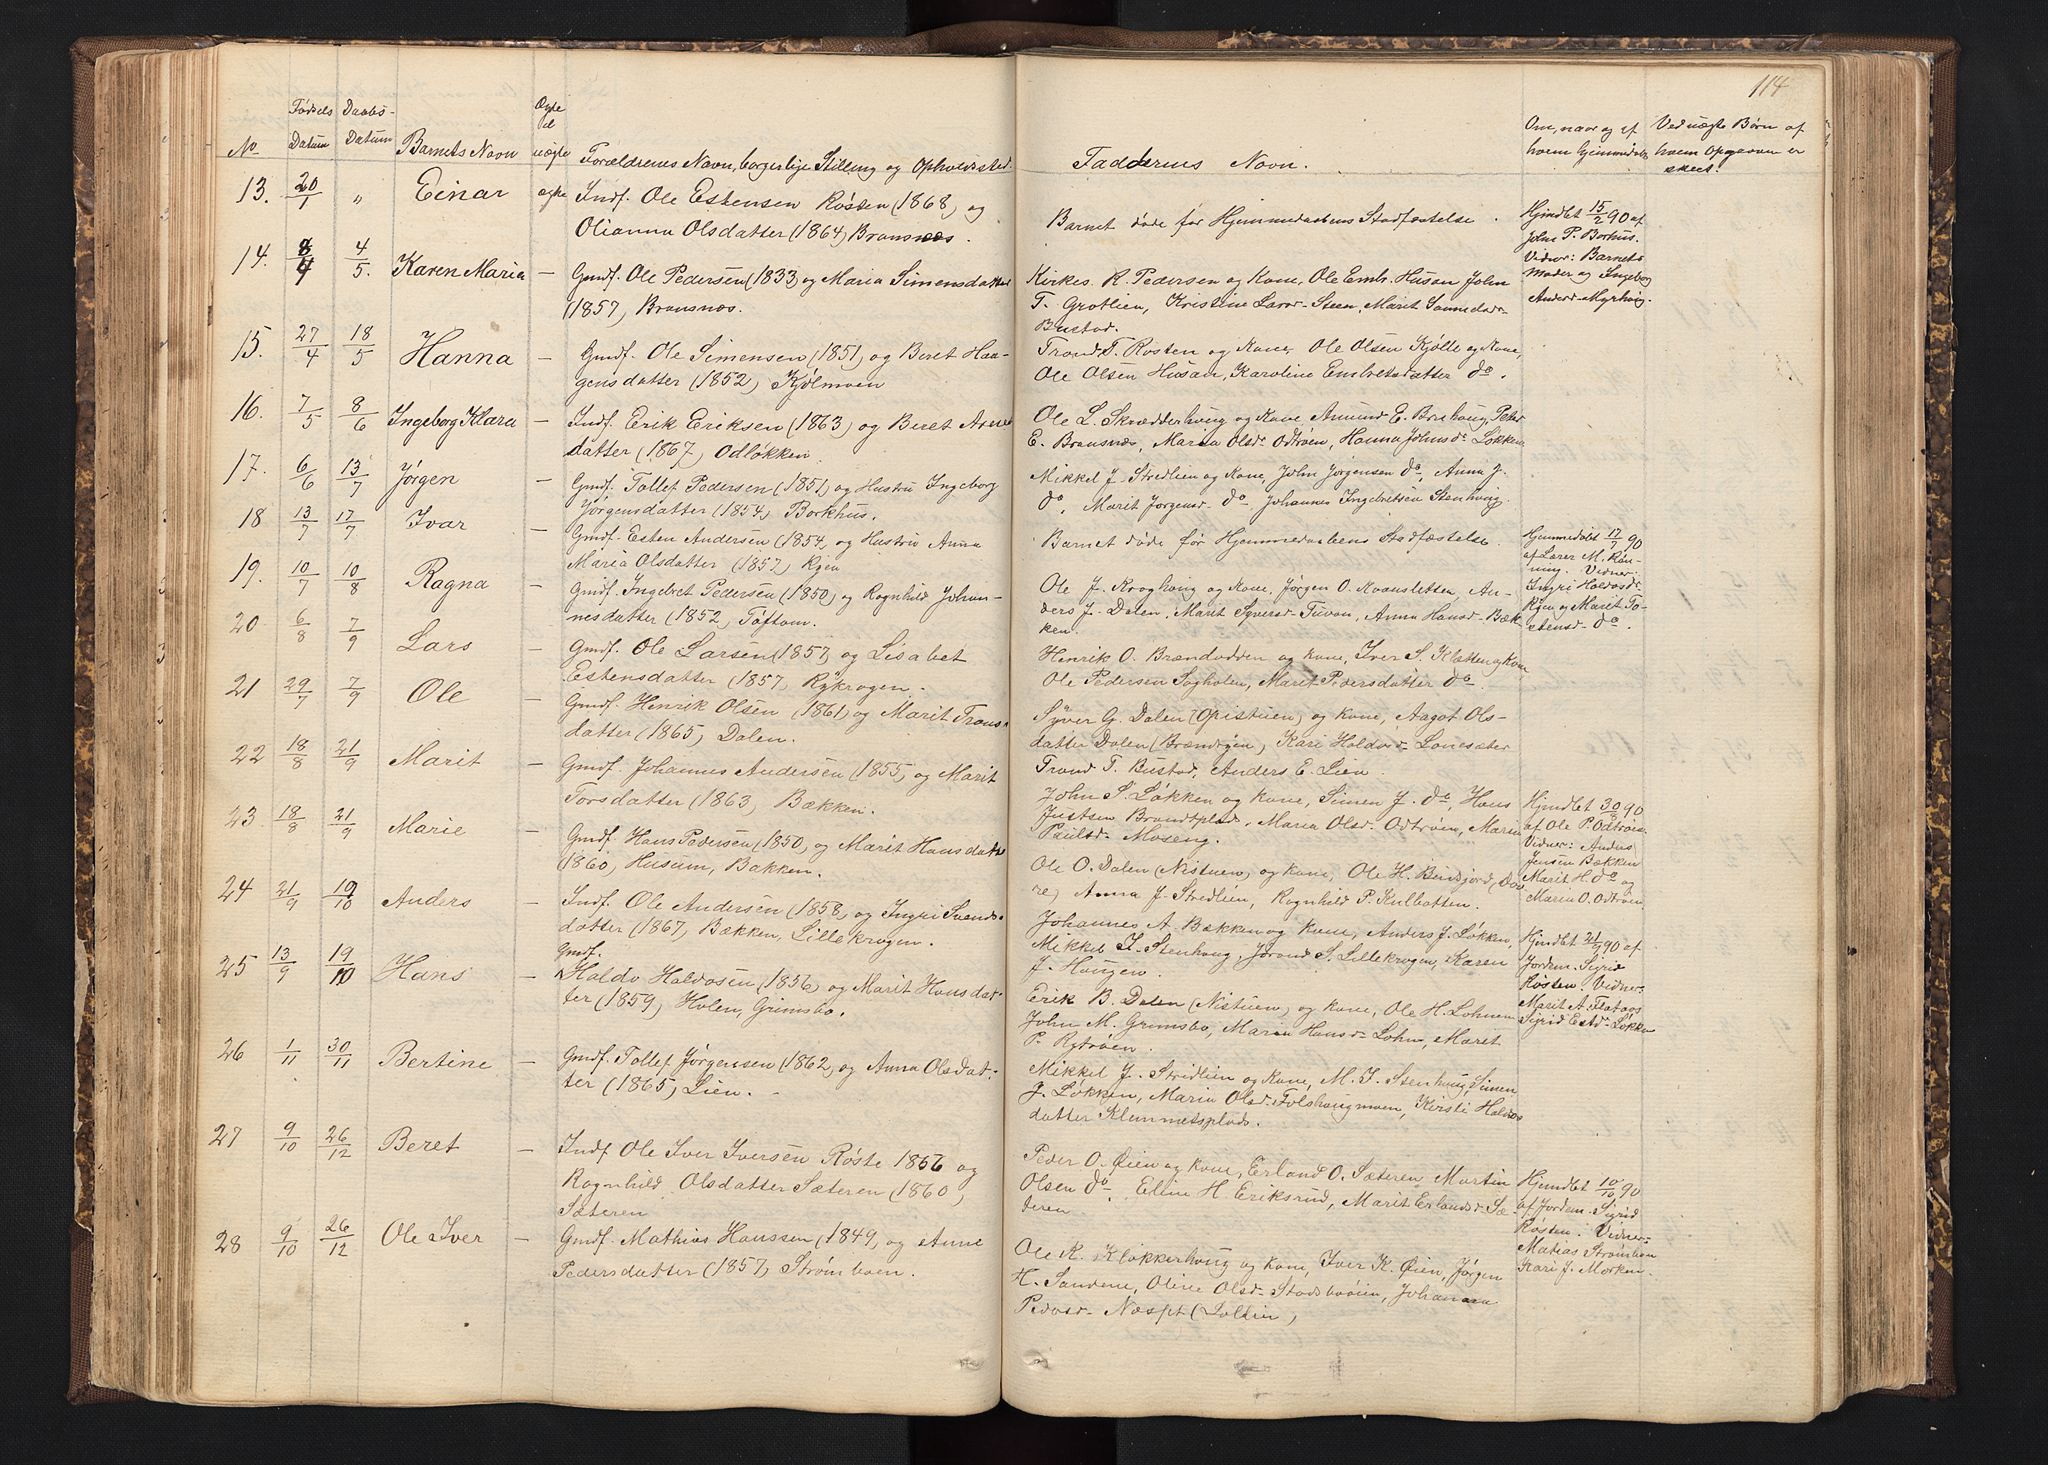 114
Fødsels Datum
Daabs-Datum
Ægte el uægte
No
Barnets Navn
Forældrenes Navn, borgerlige Stilling og Opholdssted.
Faddernes Navn.
Om, naar og af hvem hjemmedøbt
Ved uægte Børn af hvem Opgaven er skeet.
13. 20/1 " Einar ægte Indf. Ole Estensen Røsten (1868) og
Olianna Olsdatter (1864) Bransnæs.
Barnet døde før Hjemmedaabens Stadfæstelse.
Hjmdbt 15/2 90 af
John P. Borhus.
Vidner: Barnets
Moder og Ingeborg
Andersd. Myrhaug.
14. 8/4 4/5. Karen Maria — Gmdf. Ole Pedersen (1833) og Maria Simensdatter
(1857) Bransnæs.
Kirkes. R. Pedersen og Kone, Ole Emb. Husan, John
T. Grotlien, Kristine Larsd. Steen, Marit
Bustad.
15. 27/4 18/5 Hanna — Gmdf. Ole Simensen (1851) og Beret Haa-
gensdatter (1852) Kjølmoen
Trond T. Rosten og Kone, Ole Olsen Kjølle og Kone,
Ole Olsen Husan, Karoline Embretsdatter do.
16. 7/5 8/6 Ingeborg Klara — Indf. Erik Eriksen (1863) og Beret Arne
datter (1867) Odløkken.
Ole L. Skrædderhaug og Kone Amund E. Brithaug, Peder
E. Bransnæs, Maria Olsd. Odtrøen, Hanna Johnsd. Løkken
17. 6/6 13/7 Jørgen — Gmdf. Tollef Pedersen (1851) og Hustru Ingeborg
Jørgensdatter (1854) Borkhus.
Mikkel J. Stredlien og Kone, John Jørgensen do, Anna J.
do, Marit Jørgensd. do. Johannes Ingebretsen Stenhaug.
18 13/7 17/7 Ivar — Gmdf. Esten Andersen (1854) og Hustru Anna
Maria Olsdatter (1857) Ryen
Barnet døde før Hjemmedaabens Stadfæstelse.
Hjemmedøbt 17/7 90
af Lærer M. Røn-
ning. Vidner:
Ingri Haldosdr
Ryen og Marit To-
stensd. do.
19. 10/7 10/8 Ragna — Gmdf. Ingebret Pedersen (1850) og Ragnhild Johan-
nesdatter (1852) Toftom.
Ole J. Kroghaug og Kone, Jørgen O. Moansletten, An-
ders J. Dalen, Marit Syversd. Tuvan, Anna Hansd. Bæk-
ken.
20. 6/8 7/9 Lars — Gmdf. Ole Larsen (1857) og Lisabet
Estensdatter (1857) Rykrogen.
Henrik O. Brændvodden og kone, Iver S. Kletten og Kone
Ole Pedersen Sagholen, Marit Pedersdatter do.
21 29/7 7/9 Ole — Gmdf. Henrik Olsen (1861) og Marit Trons-
datter (1865) Dalen.
Syver G. Dalen (Opistuen) og kone, Aagot Ols-
datter Dalen (Brændryen), Kari Haldosd. Lonesæter
Trond T. Bustad, Anders E. Lien.
22 18/8 21/9 Marit — Gmdf. Johannes Andersen (1855) og Marit
Torsdatter (1863) Bækken.
John S. Løkken og kone, Simen J. do, Hans
Justsen Brandtplads, Maria Olsd. Odtrøen, Maria
Paulsd. Moseng.
23. 18/8 21/9 Marie — Gmdf. Hans Pedersen (1850) og Marit Hansdatter
1860) Husum, Bækken.
Ole O. Dalen (Nistuen) og kone, Ole H. Bindsjord, Dov
re) Anna J. Stredlien, Ragnhild P. Kulbotten.
Hjmdbt 30/8 90
af Ole P. Odtrøen.
Vidner: Anders
Jensen Bækken
Marit H. do og
Maria O. Odtrøen
24 21/9 19/10 Anders — Indf. Ole Andersen (1858) og Ingri Svends-
datter (1867) Bækken, Lillekrogen.
Johannes A. Bækken og kone, Anders J. Løkken,
Mikkel I. Stenhaug, Jorand S. Lillekrogen, Karen
J. Haugen.
Hjmdbt 21/9 90 af
Jordem. Sigrid
Røsten. Vidner:
Marit A. Flataas
Sigrid Estd. Løkken
25 13/9 19/10 Hans — Gmdf.
Haldo Haldosen (1856) og Marit Hansdat-
ter (1859) Holen, Grimsbo.
Erik B. Dalen (Nistuen) og kone, Ole H. Lohnen
John M. Grimsbo, Maria Hansd. Lohn, Marit
P. Rytrøen.
26 1/11 30/11 Bertine — Gmdf. Tollef Jørgensen (1862) og Anna Olsdat-
ter (1865) Lien.
Mikkel J. Stredlien og kone, M. I. Stenhaug, Simen
J. Løkken, Maria Olsd. Folshaugmoen, Kirsti Haldos
datter Klemmetsplads.
27 9/10 26/12 Beret — Indf. Ole Iver Iversen Røste 1856 og
Ragnhild Olsdatter Sæteren (1860)
Sæteren
Peder O. Øien og kone, Erland O. Sæteren, Martin
Olsen do, Eline H. Eriksrud, Marit Erlandsd. Sæ-
teren
Hjmdbt 10/10 90
af Jordem. Sigrid
Røsten. Vidner:
Matias Strømboen
Kari J. Morken.
28 9/10 26/12 Ole Iver — Gmdf. Mathias Hanssen (1849) og Anne
Pedersdatter (1857) Strømboen.
Ole R. Kløkkerhaug og kone, Iver K. Øien, Jørgen
H. Sandene, Oline Olsd. Stadsbøien, Johanna
Pedersd. Næspt (Tolden)